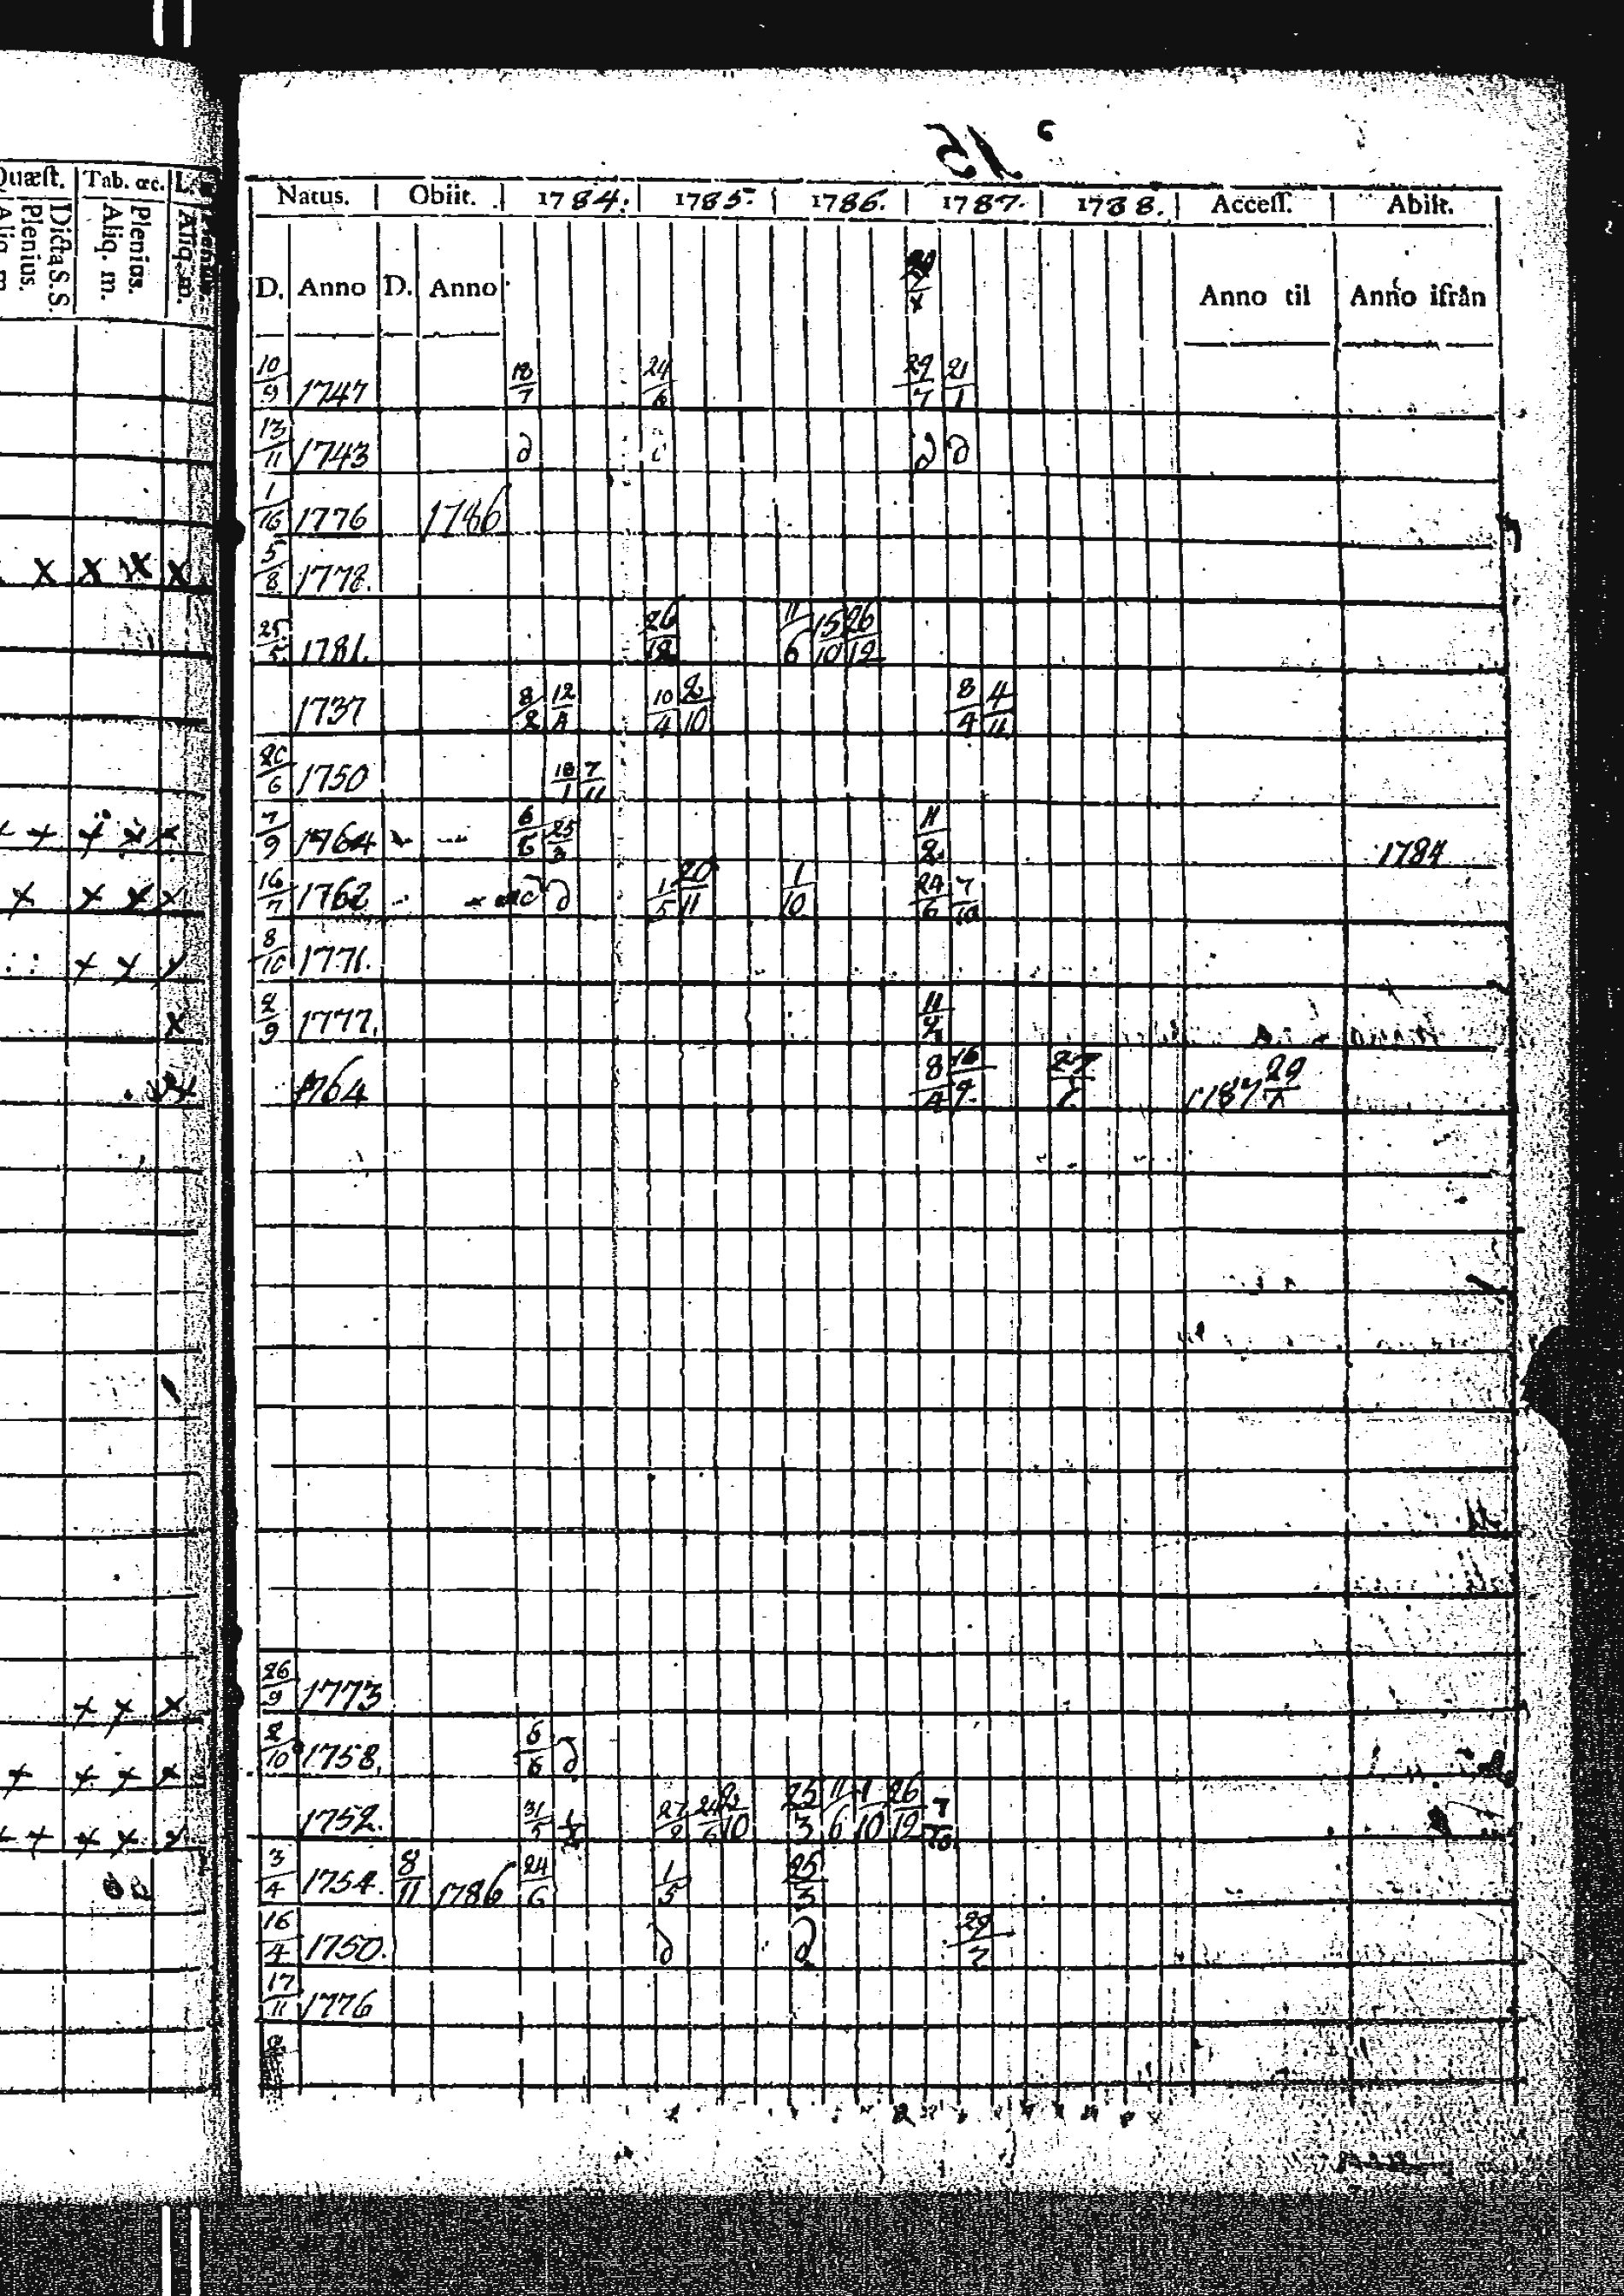 15
Quæst. Tab. œc. L.
Dicta S.S. Plenius. Aliq. m. Plenius. Aliq. m. Aliq. m.
Natus. Obiit. 1784. 1785. 1786. 1787. 1788. Access. Abiit.
D. Anno D. Anno Anno til Anno ifrån
10/9 1747 18/7 24/6 29/7 21/1
13/11 1743 d d d
1/16 1776 1786
5/8 1778.
25/5 1781. 26/12 11/6 15/10 26/12
1737 8/2 12/4 10/4 2/10 8/4 4/11
6 1750 18/1 7/11
7/9 1764 6/6 25/3 11/2 1784
16/7 1762 d 1/5 20/11 1/10 24/6 7/10
8/10 1771.
2/9 1777. 11/2
1764 8/4 16/9 27 1787 29/7
26/9 1773
2/10 1758. 6/6 d
1752. 31/5 27/2 24/6 2/10 25/3 11/6 1/10 26/12 7/10
3/4 1754. 8/11 1786 24/6 1/5 25/3
16/4 1750. d d 29/7
17/11 1776